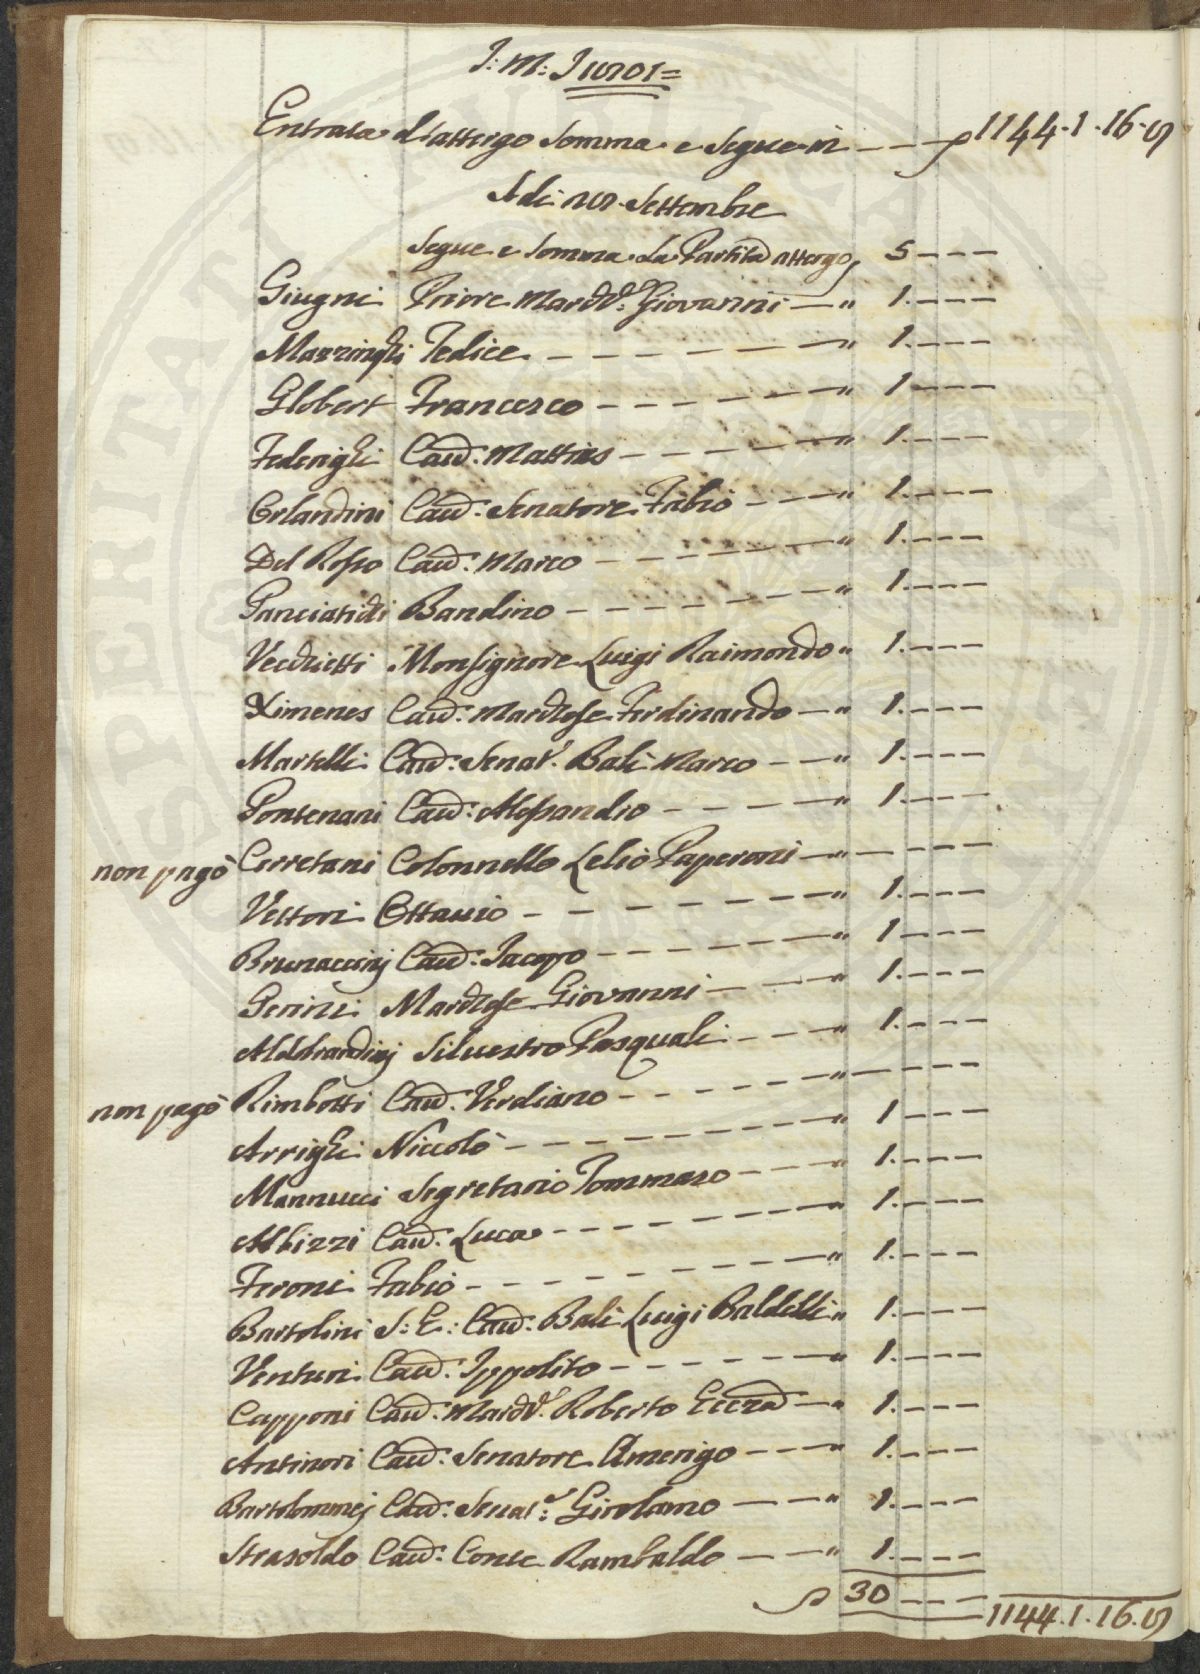 Entrata d'attergo Somma e Segue in — — 1144.1.16.
Adi Settembre
Segue e Somma La Partita attergo, 5 — — —
Giugni Priore March.e Giovanni — " 1. — — —
Mazzinghi Fedice — — — — — " 1. — — —
Globert Francesco — — — — — " 1 — — —
Federighi Cav.r Mattias — — — — " 1. — — —
Orlandini Cav.r Senatore Fabio — — — " 1. — — —
Del Rosso Cav.r Marco — — — — — " 1. — — —
Panciatichi Bandino — — — — — — " 1. — — —
Vecchietti Monsignore Luigi Raimondo " 1. — — —
Ximenes Cav.r Marchese Ferdinando — " 1. — — —
Martelli Cav.r Senat.e Balì Marco — — " 1. — — —
Pontenani Cav.r Alessandro — — — — " 1. — — —
non pagò Cerretani Colonnello Lelio Paperoni — " — — — —
Vettori Ottavio — — — — — — " 1. — — —
Brunaccinj Cav.r Jacopo — — — — — " 1 — — —
Gerini Marchese Giovanni — — — " 1. — — —
Aldobrandinj Silvestro Pasquali — — — " 1. — — —
non pagò Rimbotti Cav.r Verdiano — — — — " — — — —
Arrighi Niccolò — — — — — — — " 1 — — —
Mannucci Segretario Tommaso — — — " 1. — — —
Albizzi Cav.r Luca — — — — — — — " 1. — — —
Feroni Fabio — — — — — — — " 1. — — —
Bartolini S: E: Cav.r Balì Luigi Baldelli " 1. — — —
Venturi Cav.r Ippolito — — — — — " 1. — — —
Capponi Cav.r March.e Roberto — " 1. — — —
Antinori Cav.r Senatore Amerigo — — — " 1. — — —
Bartolommej Cav.r Senat.e Girolamo — — " 1. — — —
Strasoldo Cav.r Conte Rambaldo — — " 1. — — —
30 — — —
1144.1.16.